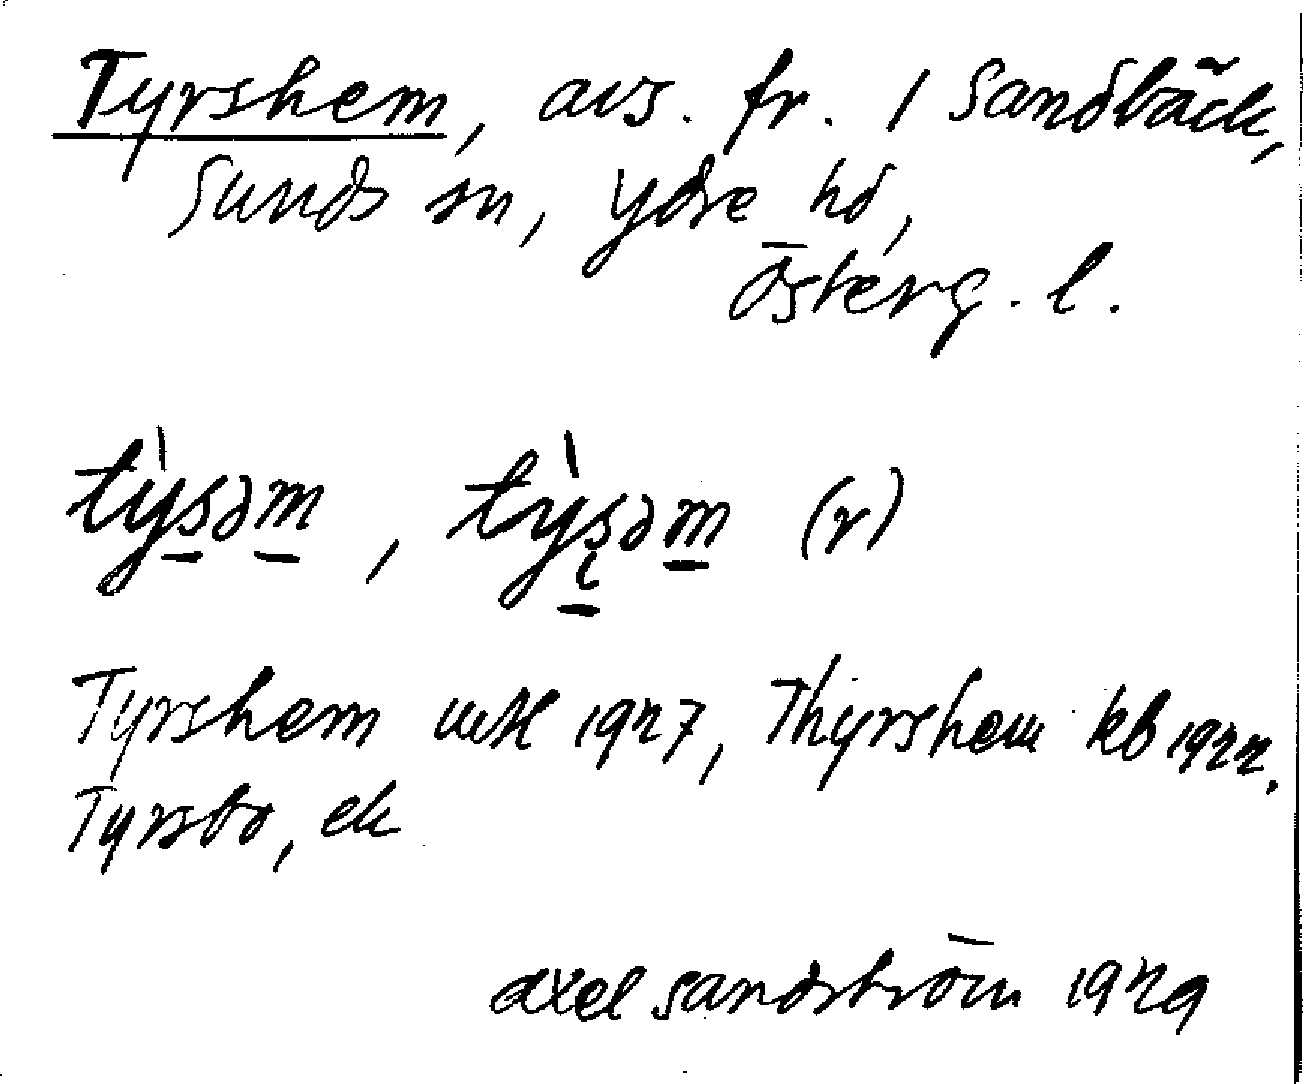 Tyrshem, avs. fr. 1 Sandbäck,
Sunds sn, Ydre hd,
Österg. l.
tỳsəm, tỳsəm (r)
Tyrshem 1927, Thyrshem kb 1922.
Tyrsbo, ek
axel sandström 1929